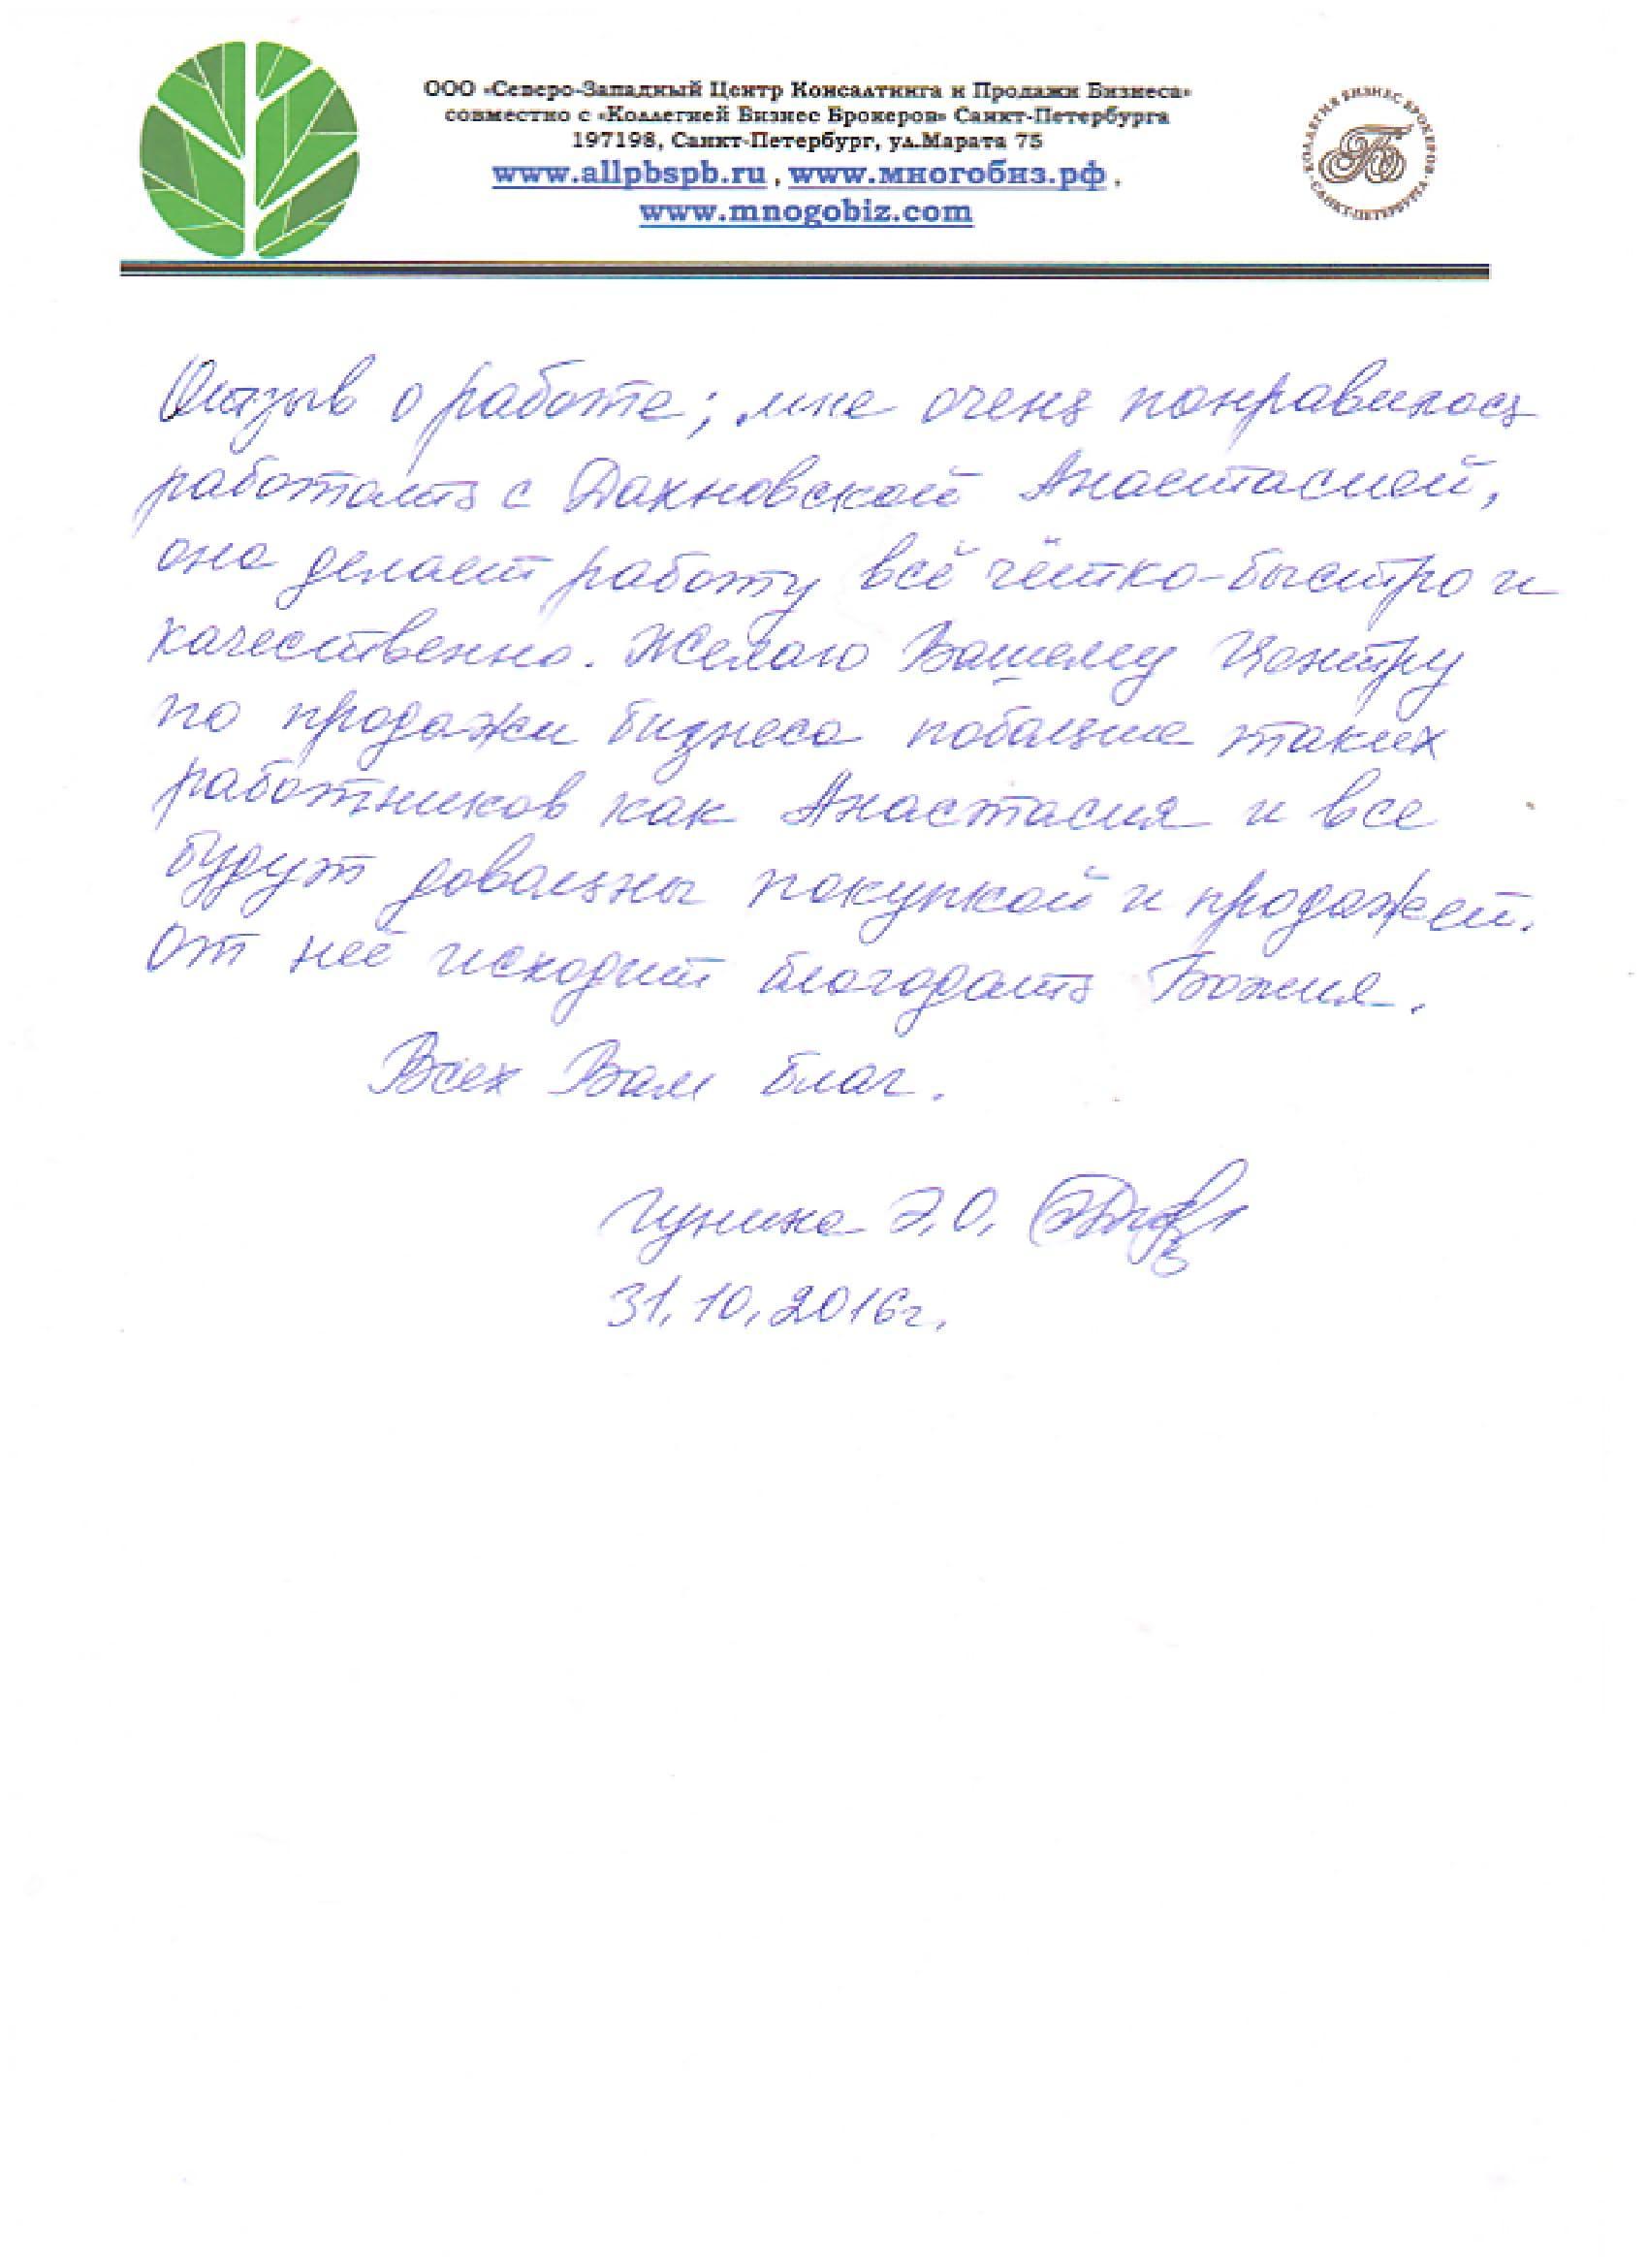 ООО «Северо-Западный Центр Консалтинга и Продажи Бизнеса»
совместно с «Коллегией Бизнес Брокеров» Санкт-Петербурга
197198, Санкт-Петербург, ул.Марата 75
www.allpbspb.ru , www.многобиз.рф ,
www.mnogobiz.com
КОЛЛЕГИЯ БИЗНЕС БРОКЕРОВ
САНКТ-ПЕТЕРБУРГА
Отзыв о работе; мне очень понравилось
работать с Дахновской Анастасией,
она делает работу всё чётко-быстро и
качественно. Желаю Вашему Центру
по продажи бизнеса побольше таких
работников как Анастасия и все
будут довольны покупкой и продажей.
От неё исходит благодать Божия.
Всех Вам благ.
Гунина Э.О.
31.10.2016г.